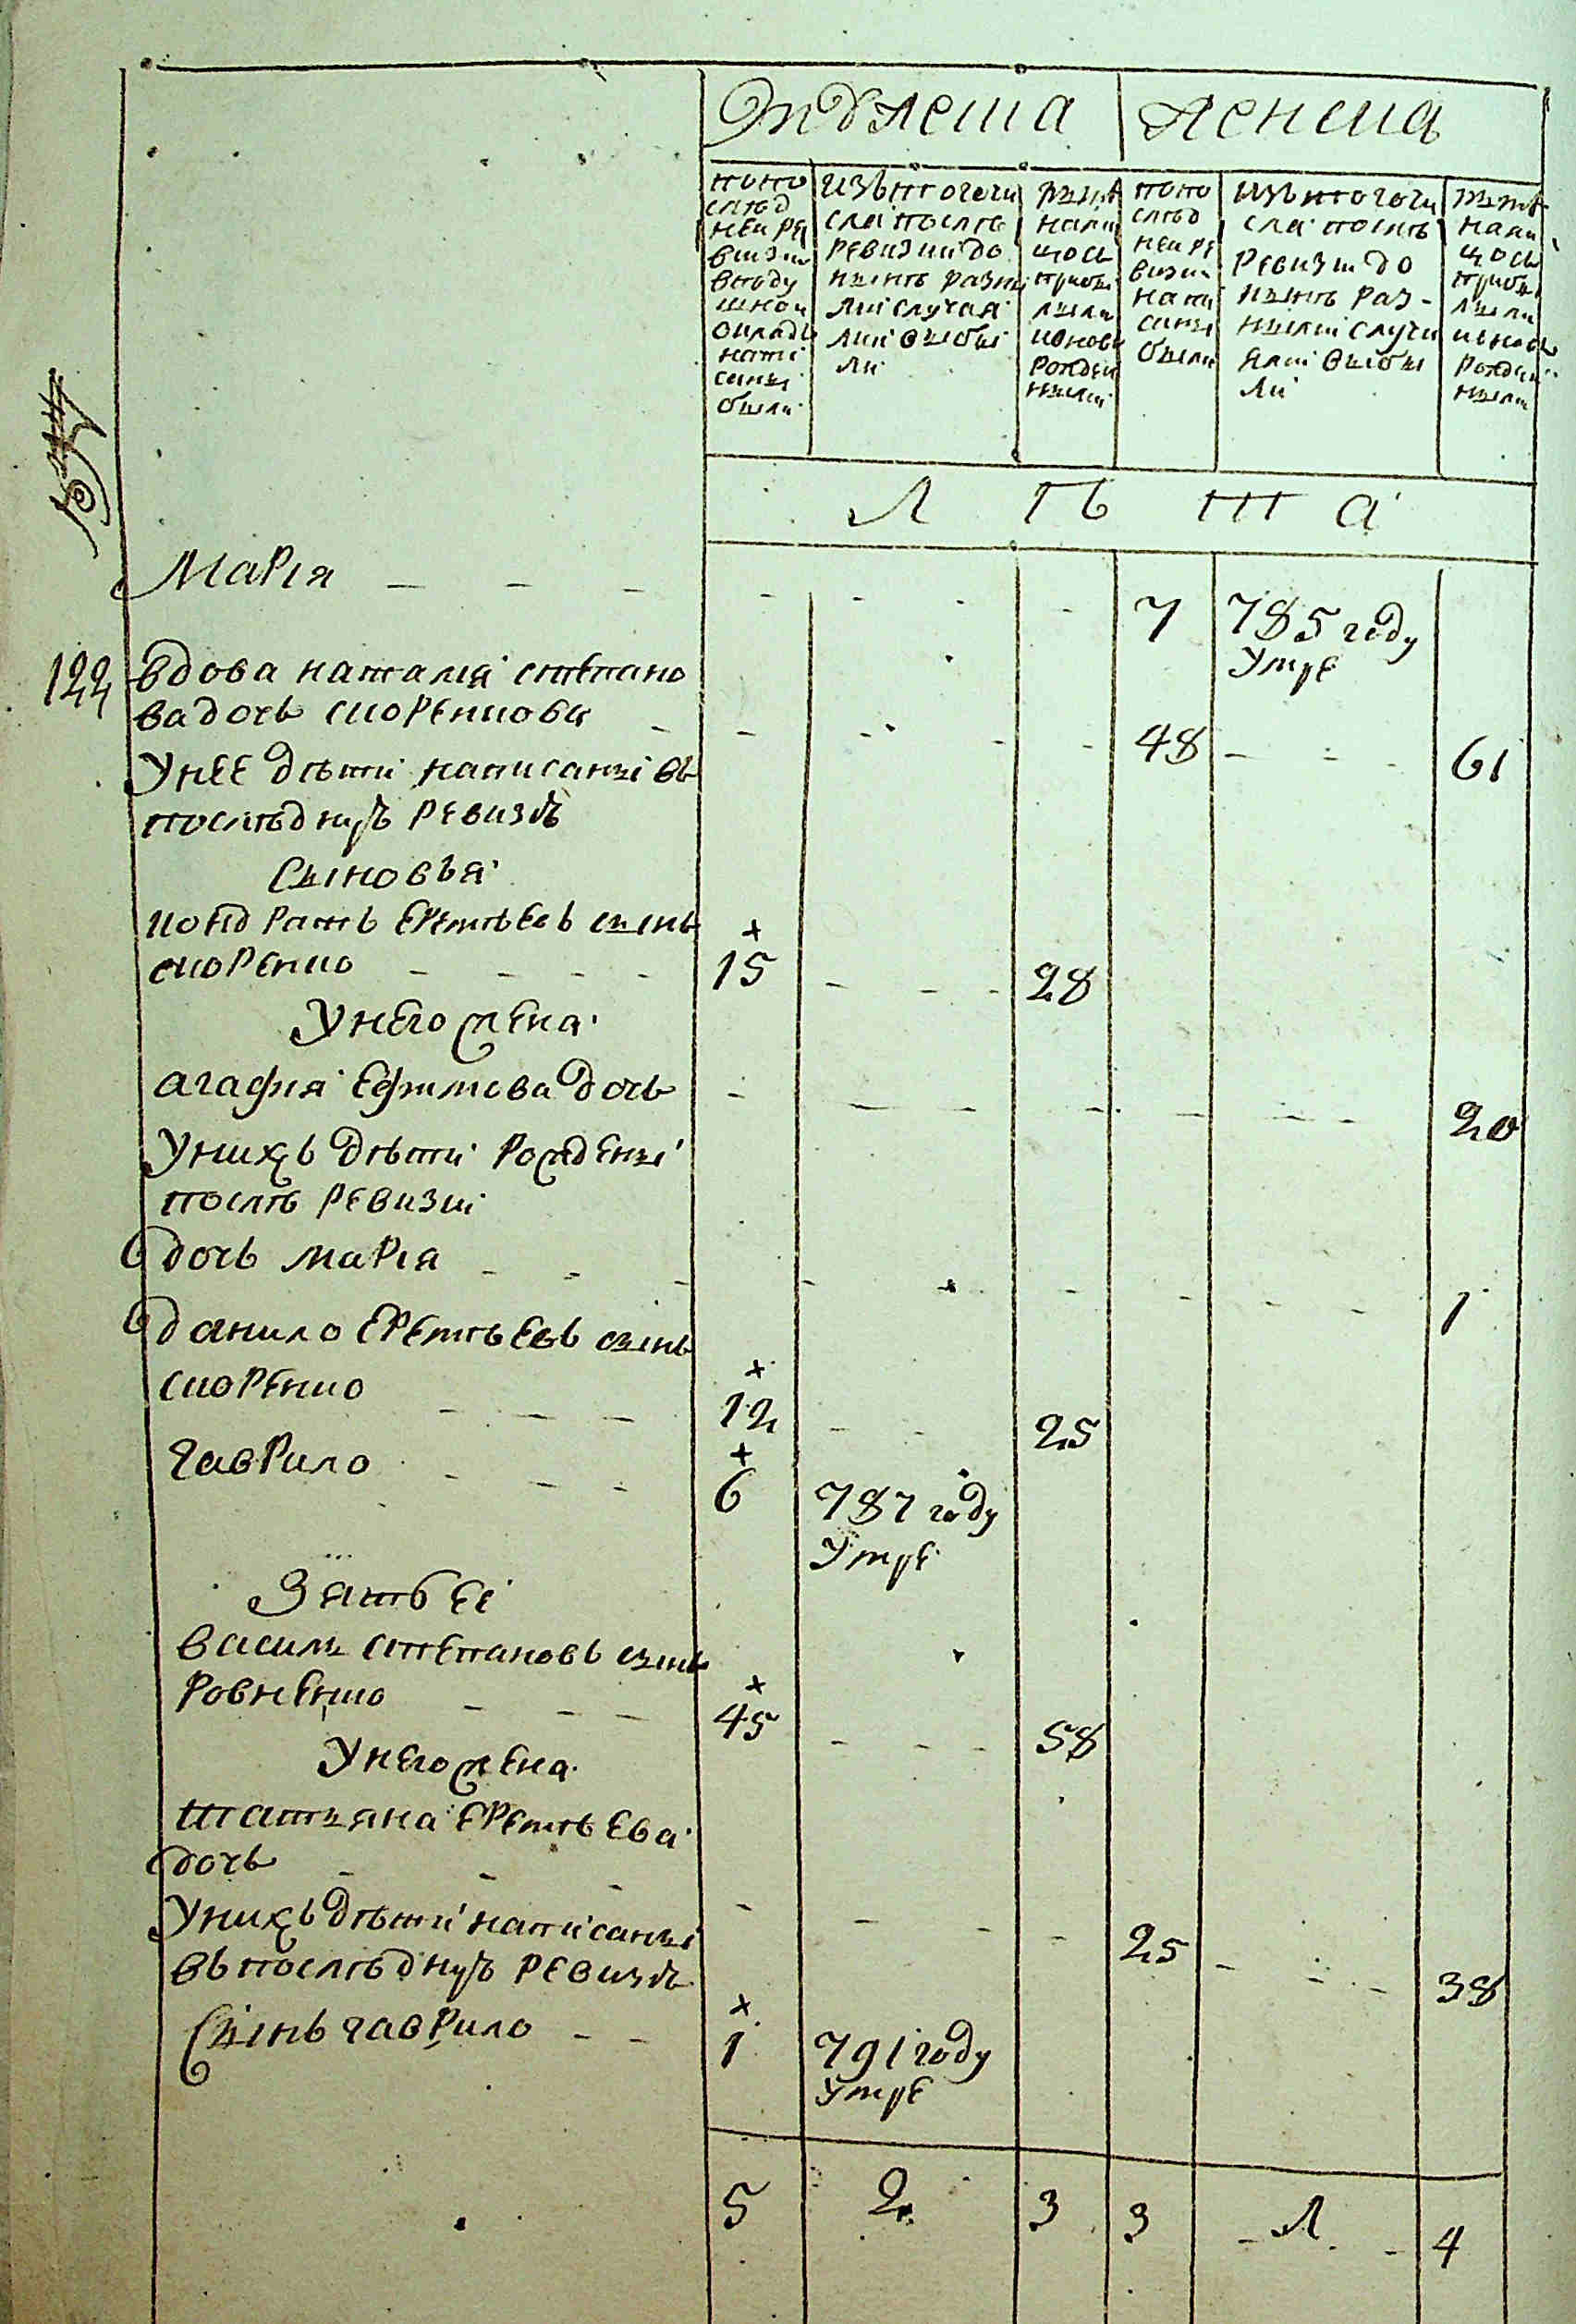 Мужеска Женска
по по
след
ней ре
визии
в поду
шном
окладе
напи
саны
были
Изъ того чи
сла после
ревизии до
ныне разны
ми случая
ми выбы
ли
ныне
нали
цо съ
прибы
лыми
и новс
рожден
ными
по по
след
ней ре
визии
напи
саны
были
Изъ того чи
сла после
ревизии до
ныне раз-
ными случа
ями выбы
ли
ныне
нали
цо съ
прибы
лыми
и новс
рожден
ными
Л ѣ т а
Мария - - - - - - - 7 785 году
Умре
122 Вдова наталия степано
ва дочь скоренкова - - - - - 48 - - - 61
У нее дѣти написаны въ
последнуъ ревизъ
Сыновья
кондратъ еремѣевъ сынъ
скоренко - - - - 15 - - - 28
У него жена
агафия Ефимова дочь - - - - - - - 20
У нихъ дѣти рождены
послѣ ревизии
дочь мария - - - - - - - - - 1
данило еремѣевъ сынъ
скоренко - - - 12 - - 25
гаврило - - - 6 787 году
Умре
Зять еи
василь степановъ сынъ
ровненко - - - 45 - - - 58
У него жена
татьяна еремѣева
дочь - - - - - - - 25 - - - 38
У нихъ дѣти написаны
въ последнуъ ревизъ
Сынъ гаврило - - 1 791 году
Умре
5 2 3 3 - 1 - - 4